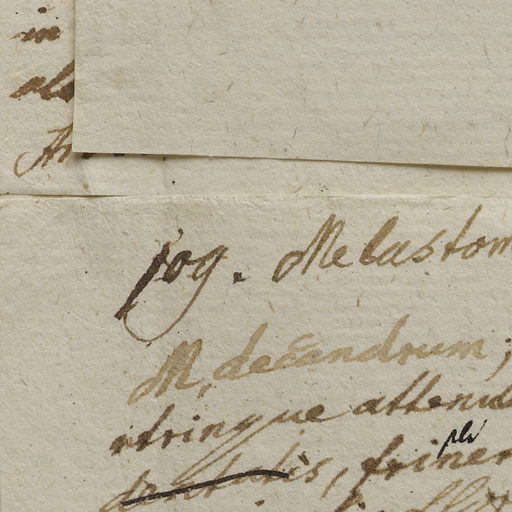 in
pog. Melastom
M. decandrum;
utrinque attenu
pli
dentatis, triner